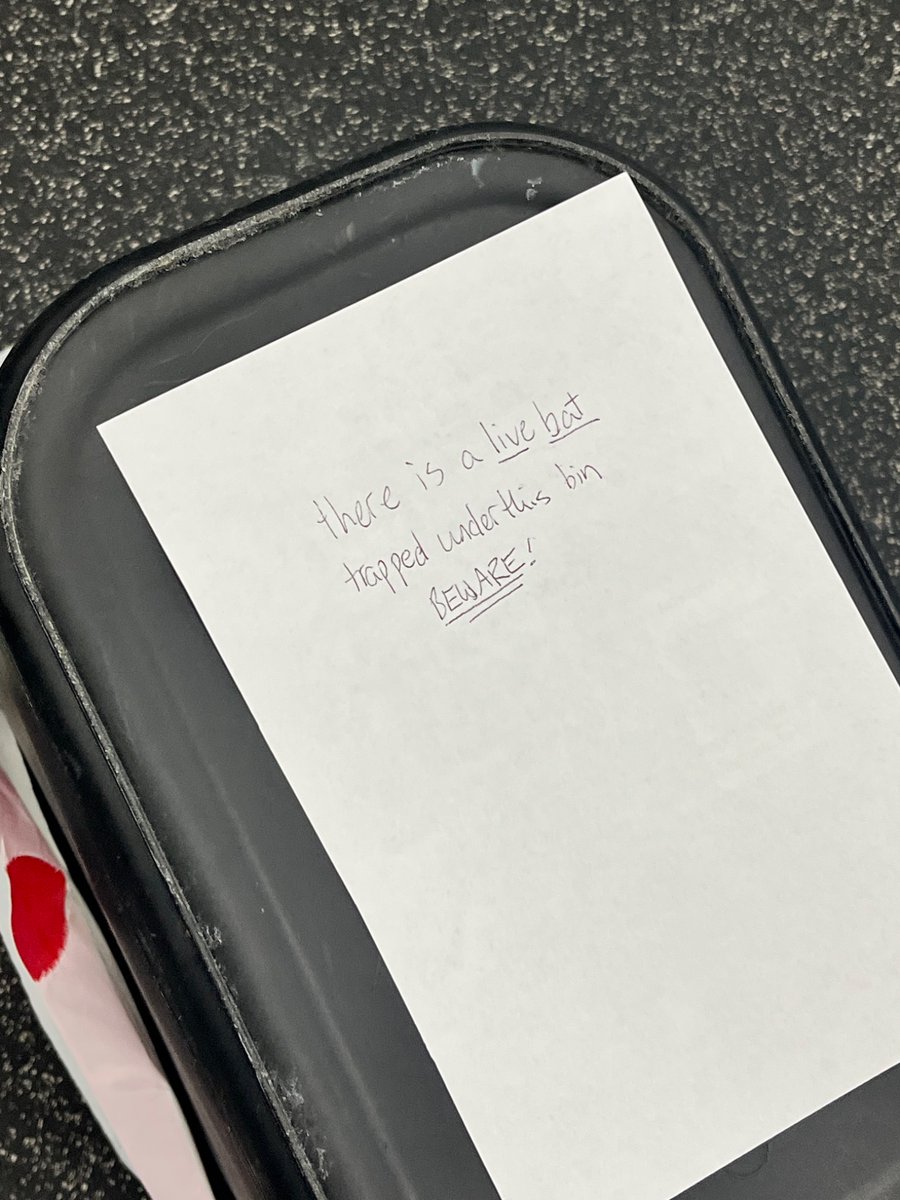 there is a live bat
trapped under this bin
BEWARE!